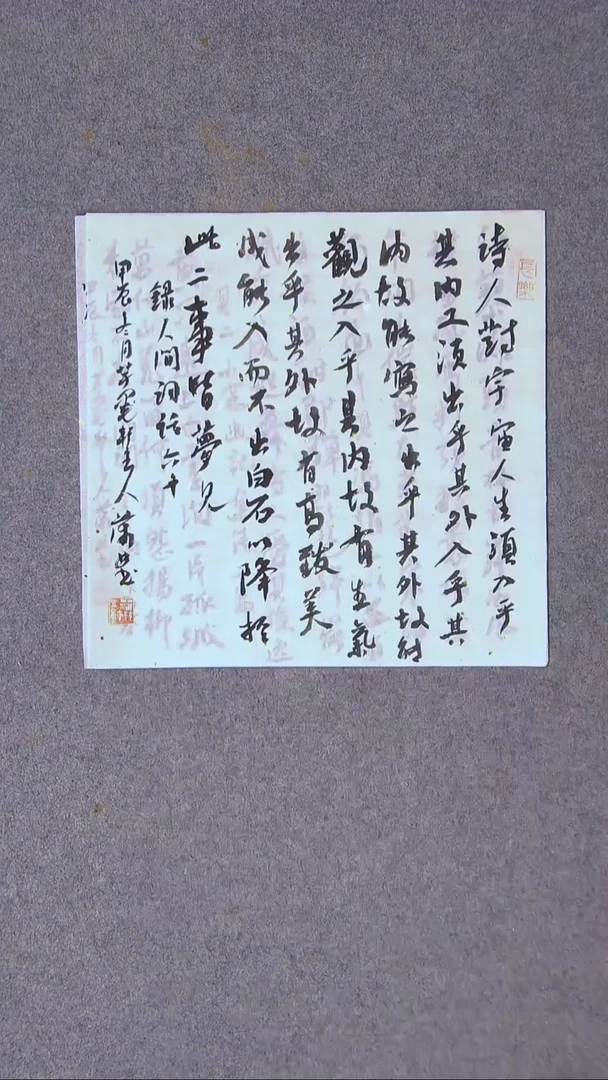 詩人對宇宙人生須入乎
其內又須出乎其外入乎其
內故能寫之出乎其外故能
觀之入乎其內故有生氣
出乎其外故有高致美
成能入而不出白石以降於
此二事皆夢見
錄人間詞話六十
甲辰冬月 軒主人
長樂